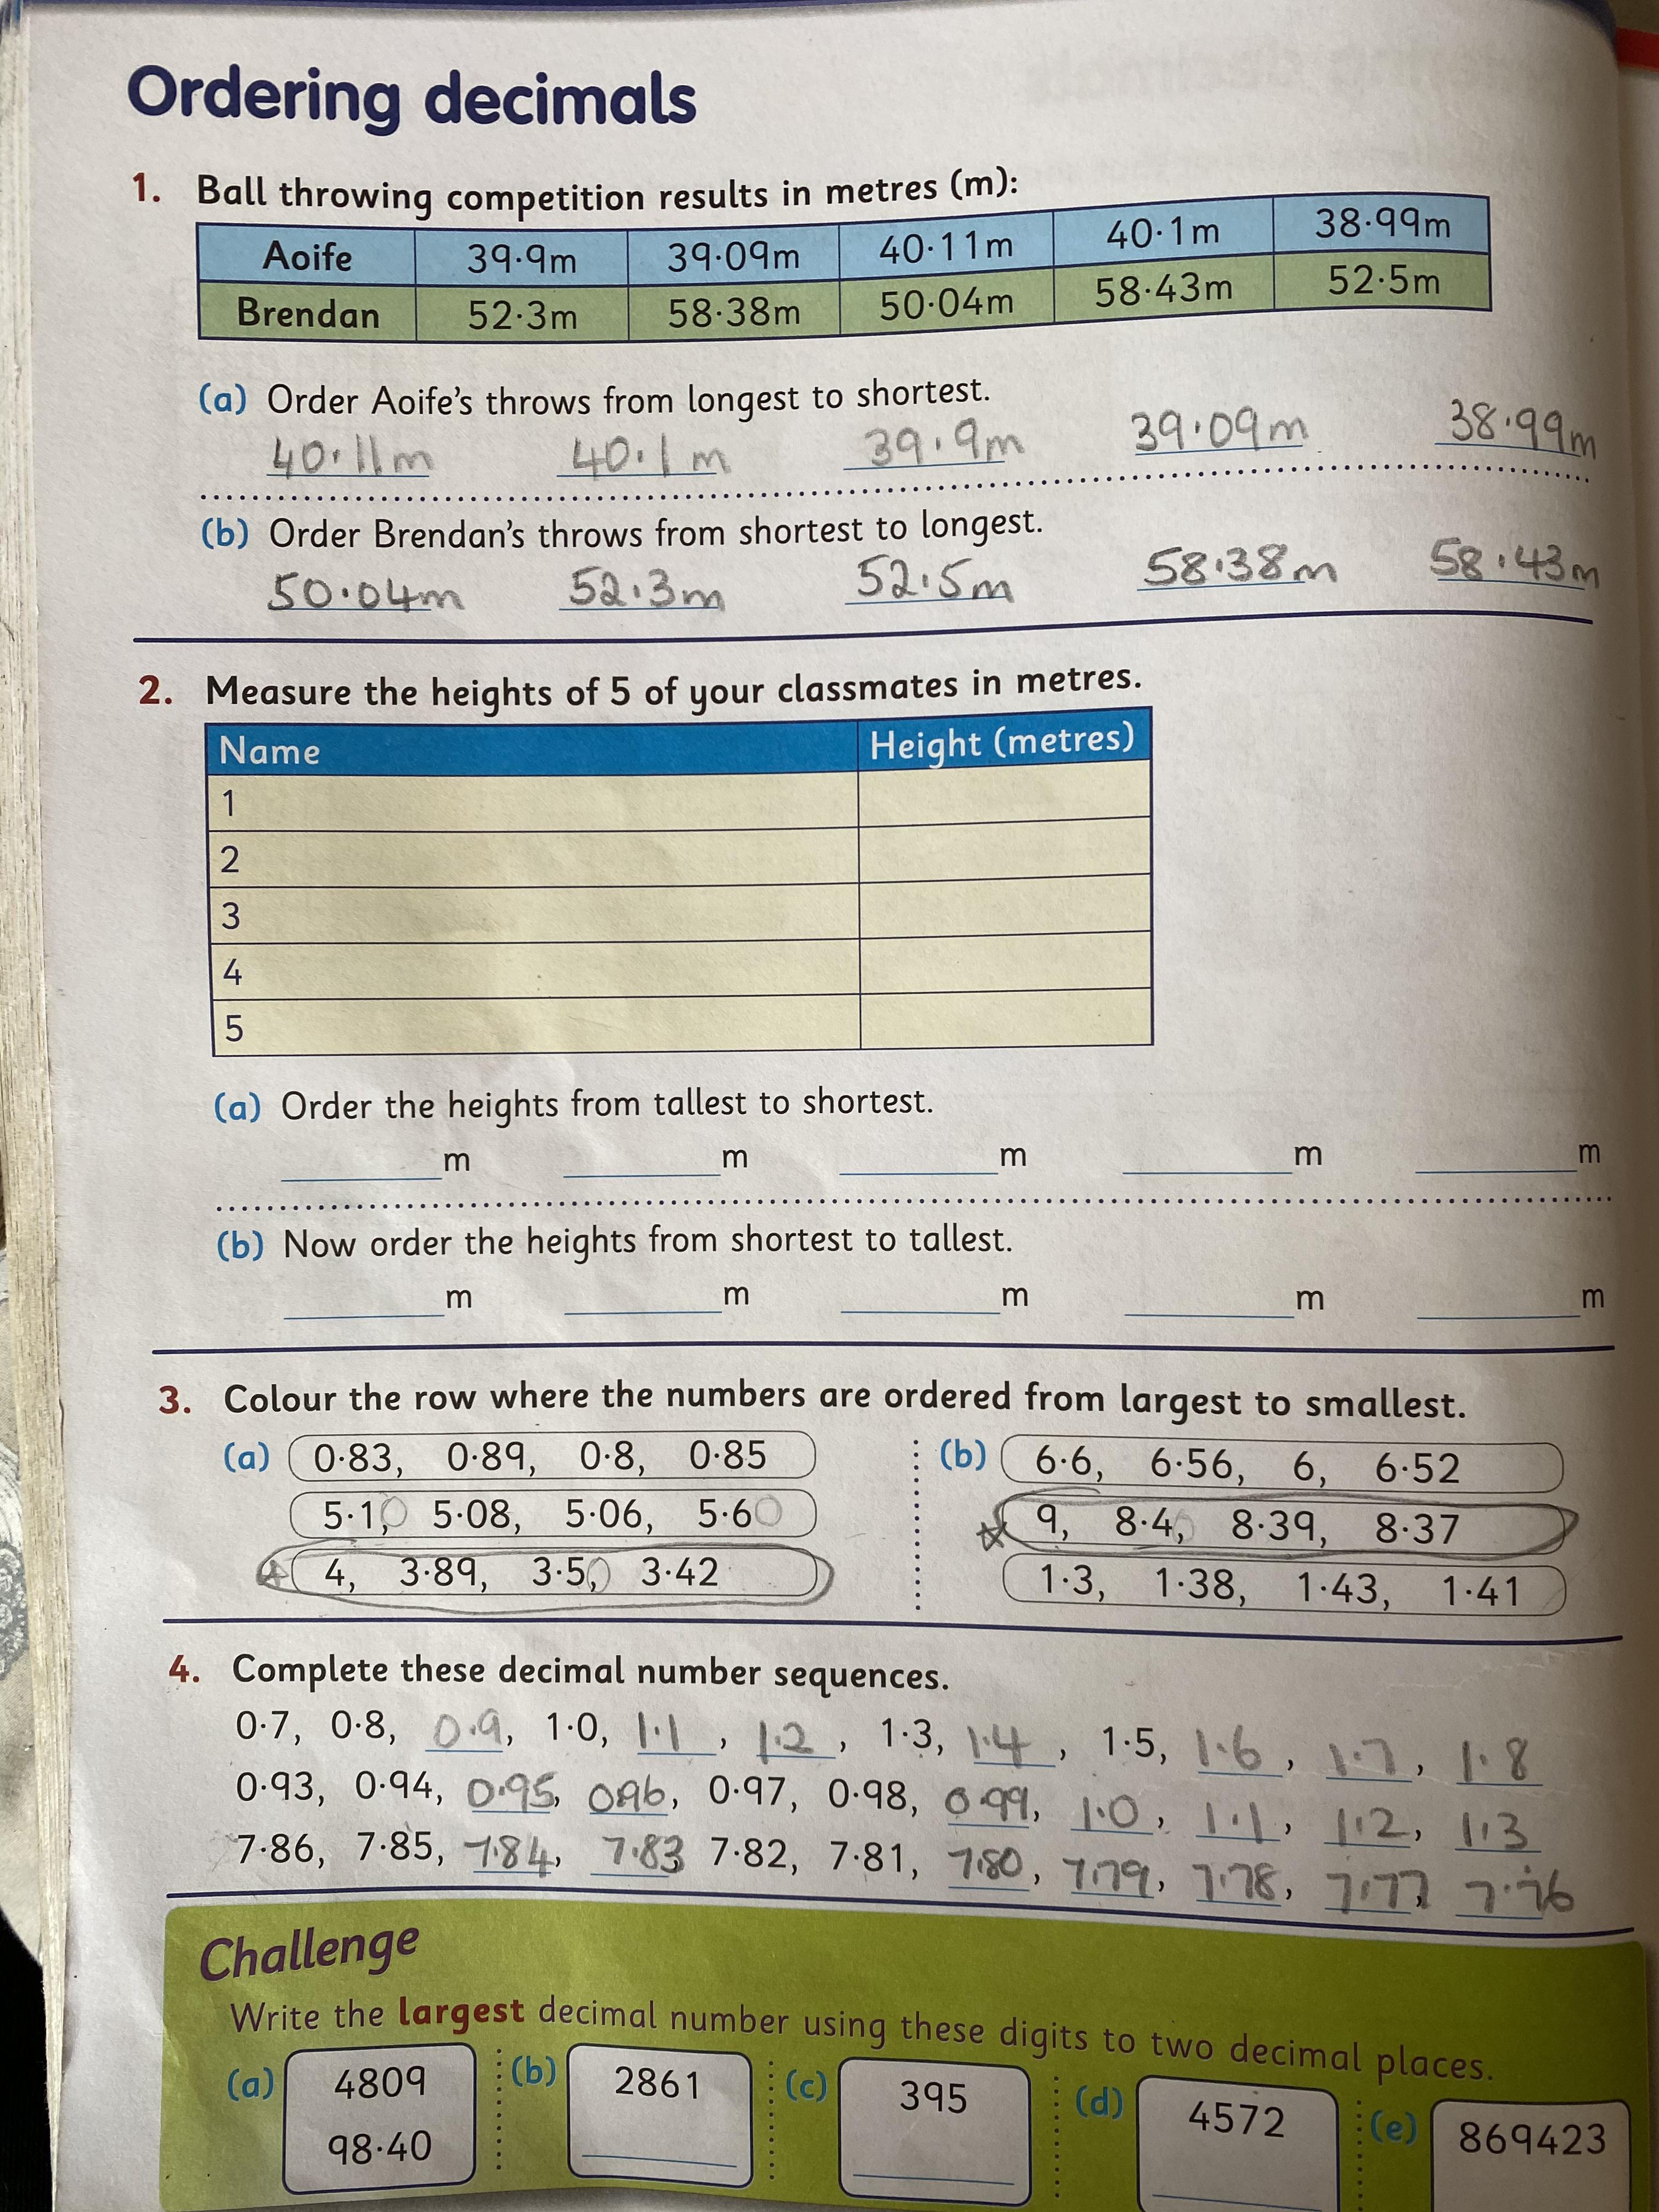 Ordering decimals
1. Ball throwing competition results in metres (m):
Aoife 39·9m 39·09m 40·11m 40·1m 38·99m
Brendan 52·3m 58·38m 50·04m 58·43m 52·5m
(a) Order Aoife's throws from longest to shortest.
40·11m 40·1m 39·9m 39·09m 38·99m
(b) Order Brendan's throws from shortest to longest.
50·04m 52·3m 52·5m 58·38m 58·43m
2. Measure the heights of 5 of your classmates in metres.
Name Height (metres)
1
2
3
4
5
(a) Order the heights from tallest to shortest.
m m m m m
(b) Now order the heights from shortest to tallest.
m m m m m
3. Colour the row where the numbers are ordered from largest to smallest.
(a) 0·83, 0·89, 0·8, 0·85
5·10, 5·08, 5·06, 5·60
4, 3·89, 3·50, 3·42
(b) 6·6, 6·56, 6, 6·52
9, 8·40, 8·39, 8·37
1·3, 1·38, 1·43, 1·41
4. Complete these decimal number sequences.
0·7, 0·8, 0·9, 1·0, 1·1, 1·2, 1·3, 1·4, 1·5, 1·6, 1·7, 1·8
0·93, 0·94, 0·95, 0·96, 0·97, 0·98, 0·99, 1·0, 1·1, 1·2, 1·3
7·86, 7·85, 7·84, 7·83 7·82, 7·81, 7·80, 7·79, 7·78, 7·77, 7·76
Challenge
Write the largest decimal number using these digits to two decimal places.
(a) 4809 (b) 2861 (c) 395 (d) 4572 (e) 869423
98·40